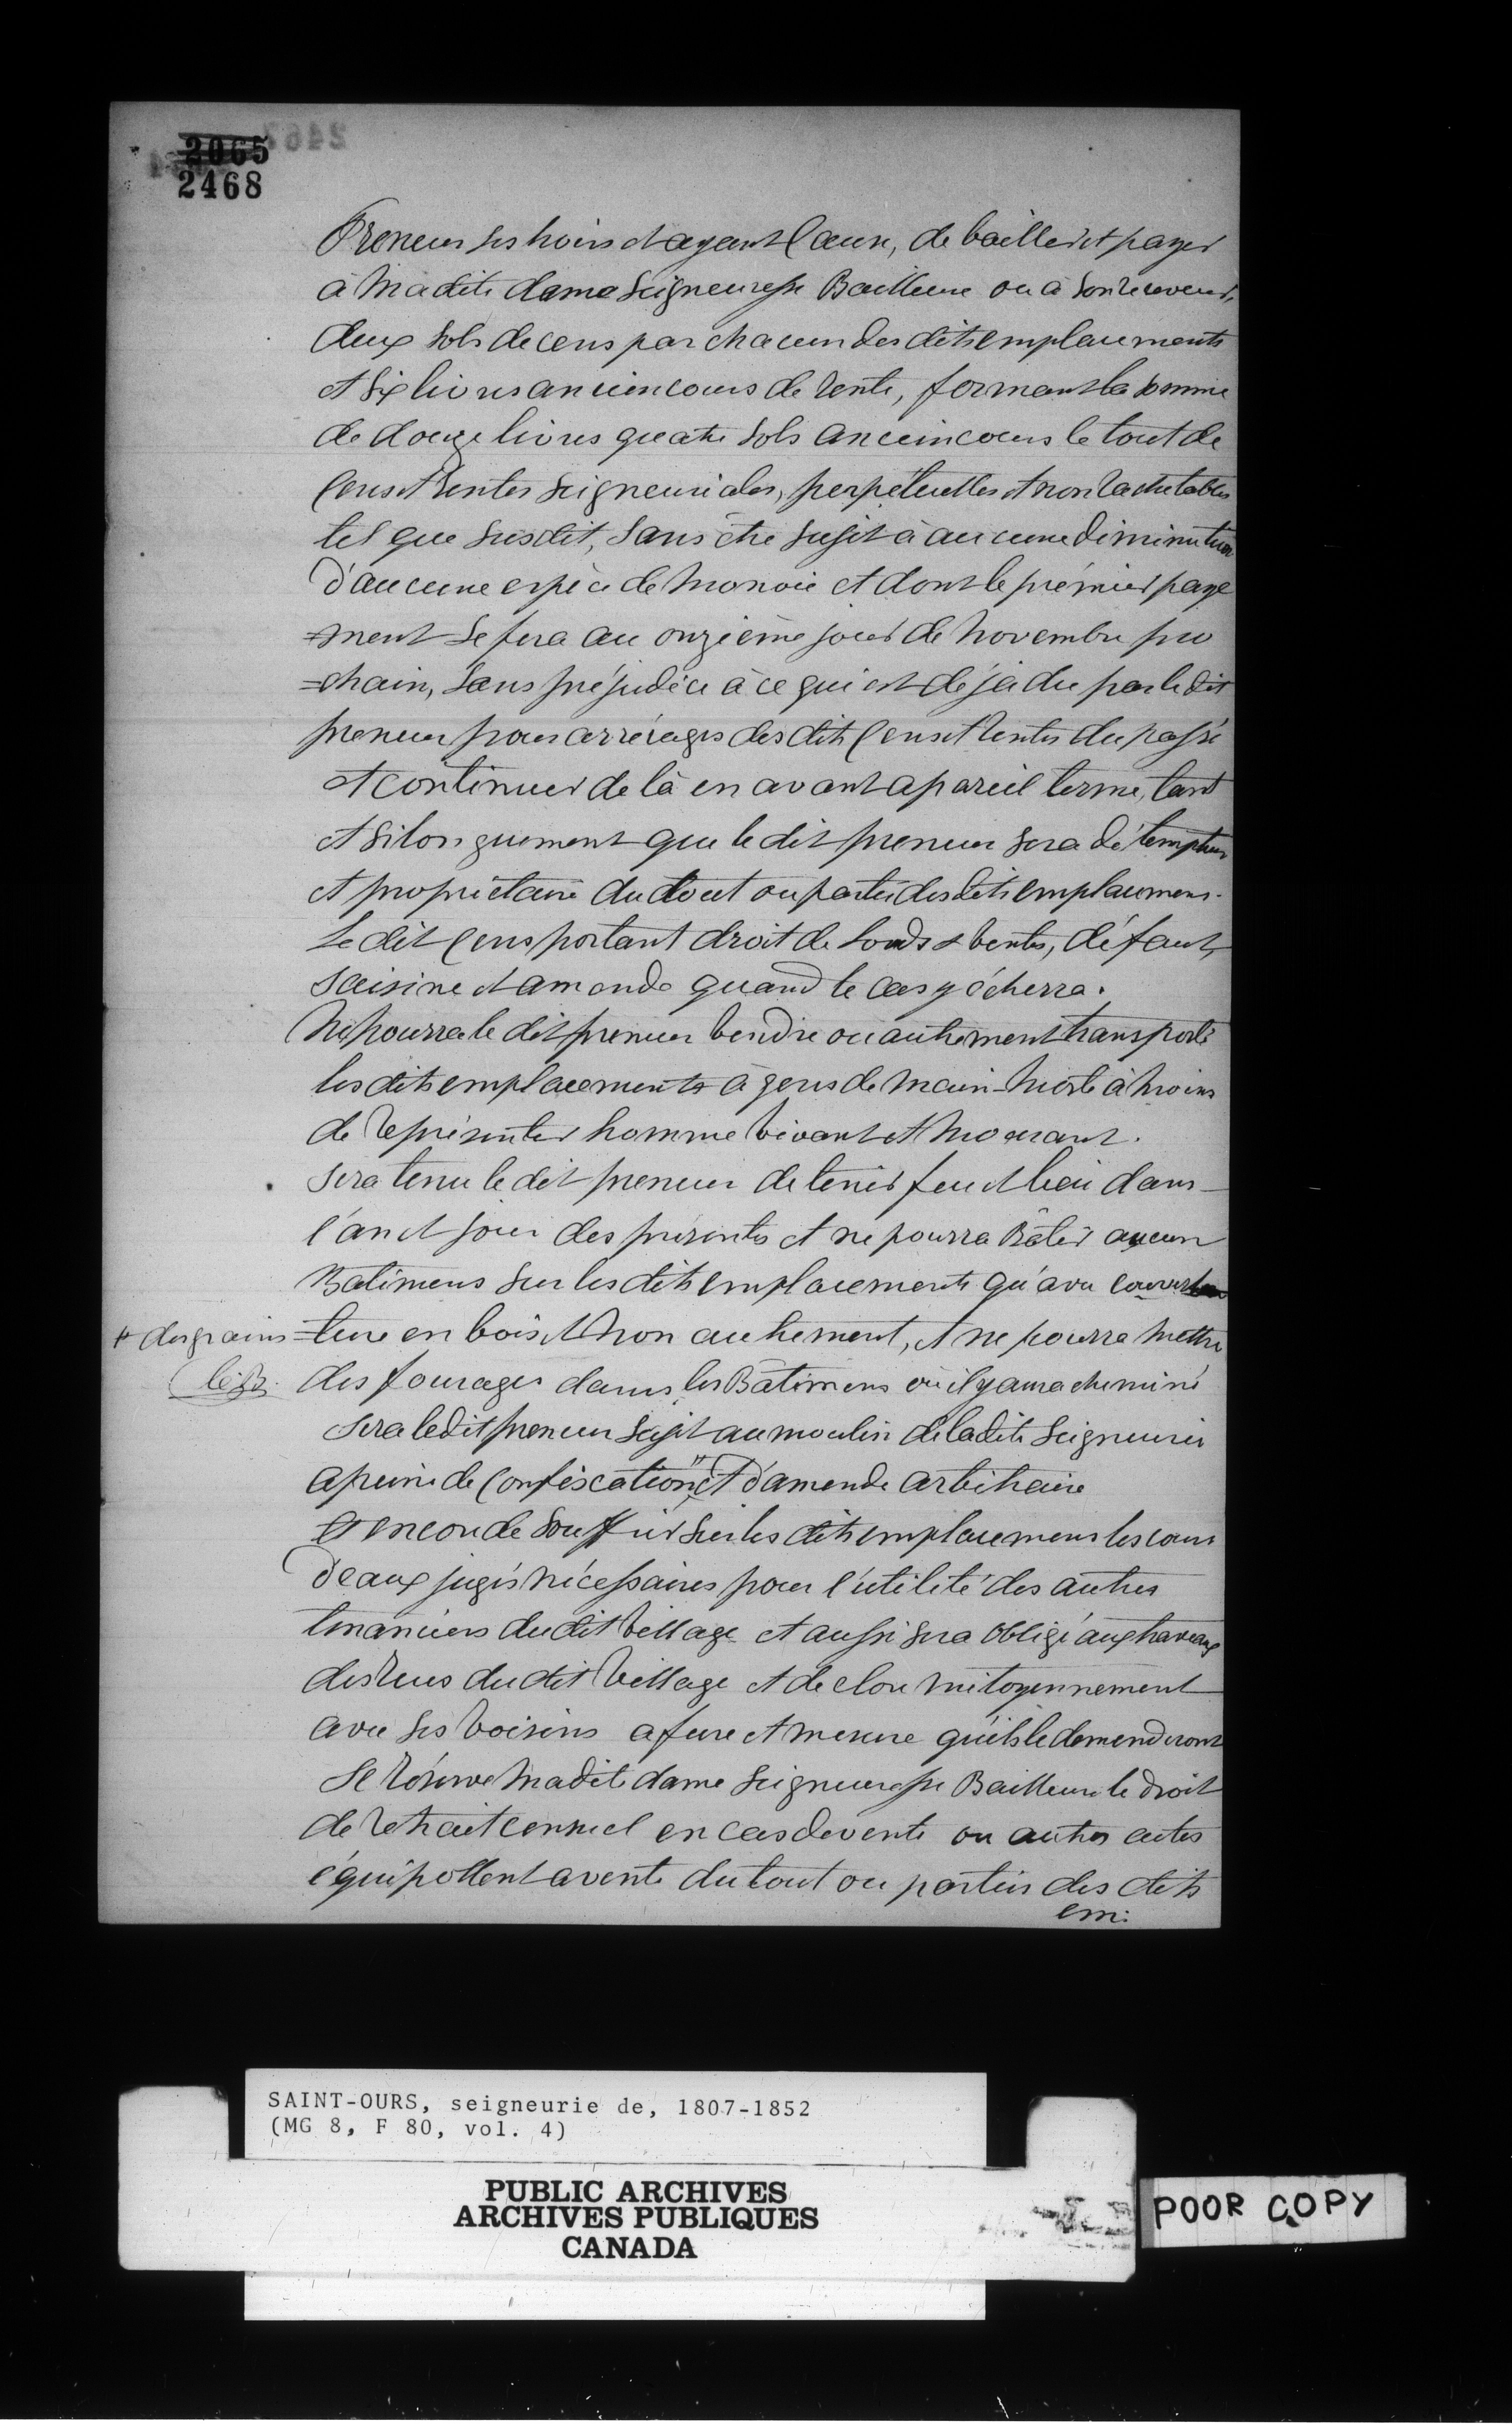 2065
2468
Preneur ses hoirs et ayant Cause, de bailler et payer
à Madite dame Seigneuresse Bailleure ou à son receveur,
deux sols de cens par chacun des dits emplacements
et six livres ancien cours de rente, formant la somme
de douze livres quatre sols ancien cours le tout de
Cens et Rentes Seigneuriales, perpétuelles et non rachetables
tel que susdit, sans être sujet à aucune diminution
d'aucune espèce de Monoie et dont le prémier paye
=ment se fera au onzième jour de Novembre pro
=chain, sans préjudice à ce qui est déja du par le dit
preneur pour arrérages des dits Cens et rentes du passé
et continuer de là en avant a pareil terme, tant
et si longuement que le dit preneur sera détempteur
et propriétaire du tout ou partie des dits emplacemens.
Le dit Cens portant droit de Lods & ventes, défaut,
saisine et amende quand le cas y écherra.
Ne pourra le dit preneur vendre ou autrement transporté
les dits emplacements à gens de Main-Morte à Moins
de représenter homme vivant et Mourant.
sera tenu le dit preneur de tenir feu et lieu dans
l'an et jour des présentes et ne pourra Bâtir aucun
Batimens sur les dits emplacements qu'avec couver
# des grains
=ture en bois et Non autrement, et ne pourra mettre
des fourages dans les Bâtimens où il y aura cheminé
sera le dit preneur sujet au moulin de la dite Seigneurie
a peine de Confiscation # et d'amende arbitraire
et encore de souffrir sur les dits emplacemens les cours
d'eaux jugés nécessaires pour l'utilité des autres
tenanciers du dit Village et aussi sera obligé aux travaux
des rues du dit Village et de clore mitoyennement
avec ses voisins a fure et mesure qu'ils le demenderont
Se réserve Madite dame Seigneuresse Bailleure le droit
de retrait censuel en cas de vente ou autres actes
équipollent a vente du tout ou parties des dits
em:
SAINT-OURS, seigneurie de, 1807-1852
(MG 8, F 80, vol. 4)
PUBLIC ARCHIVES
ARCHIVES PUBLIQUES
CANADA
POOR COPY